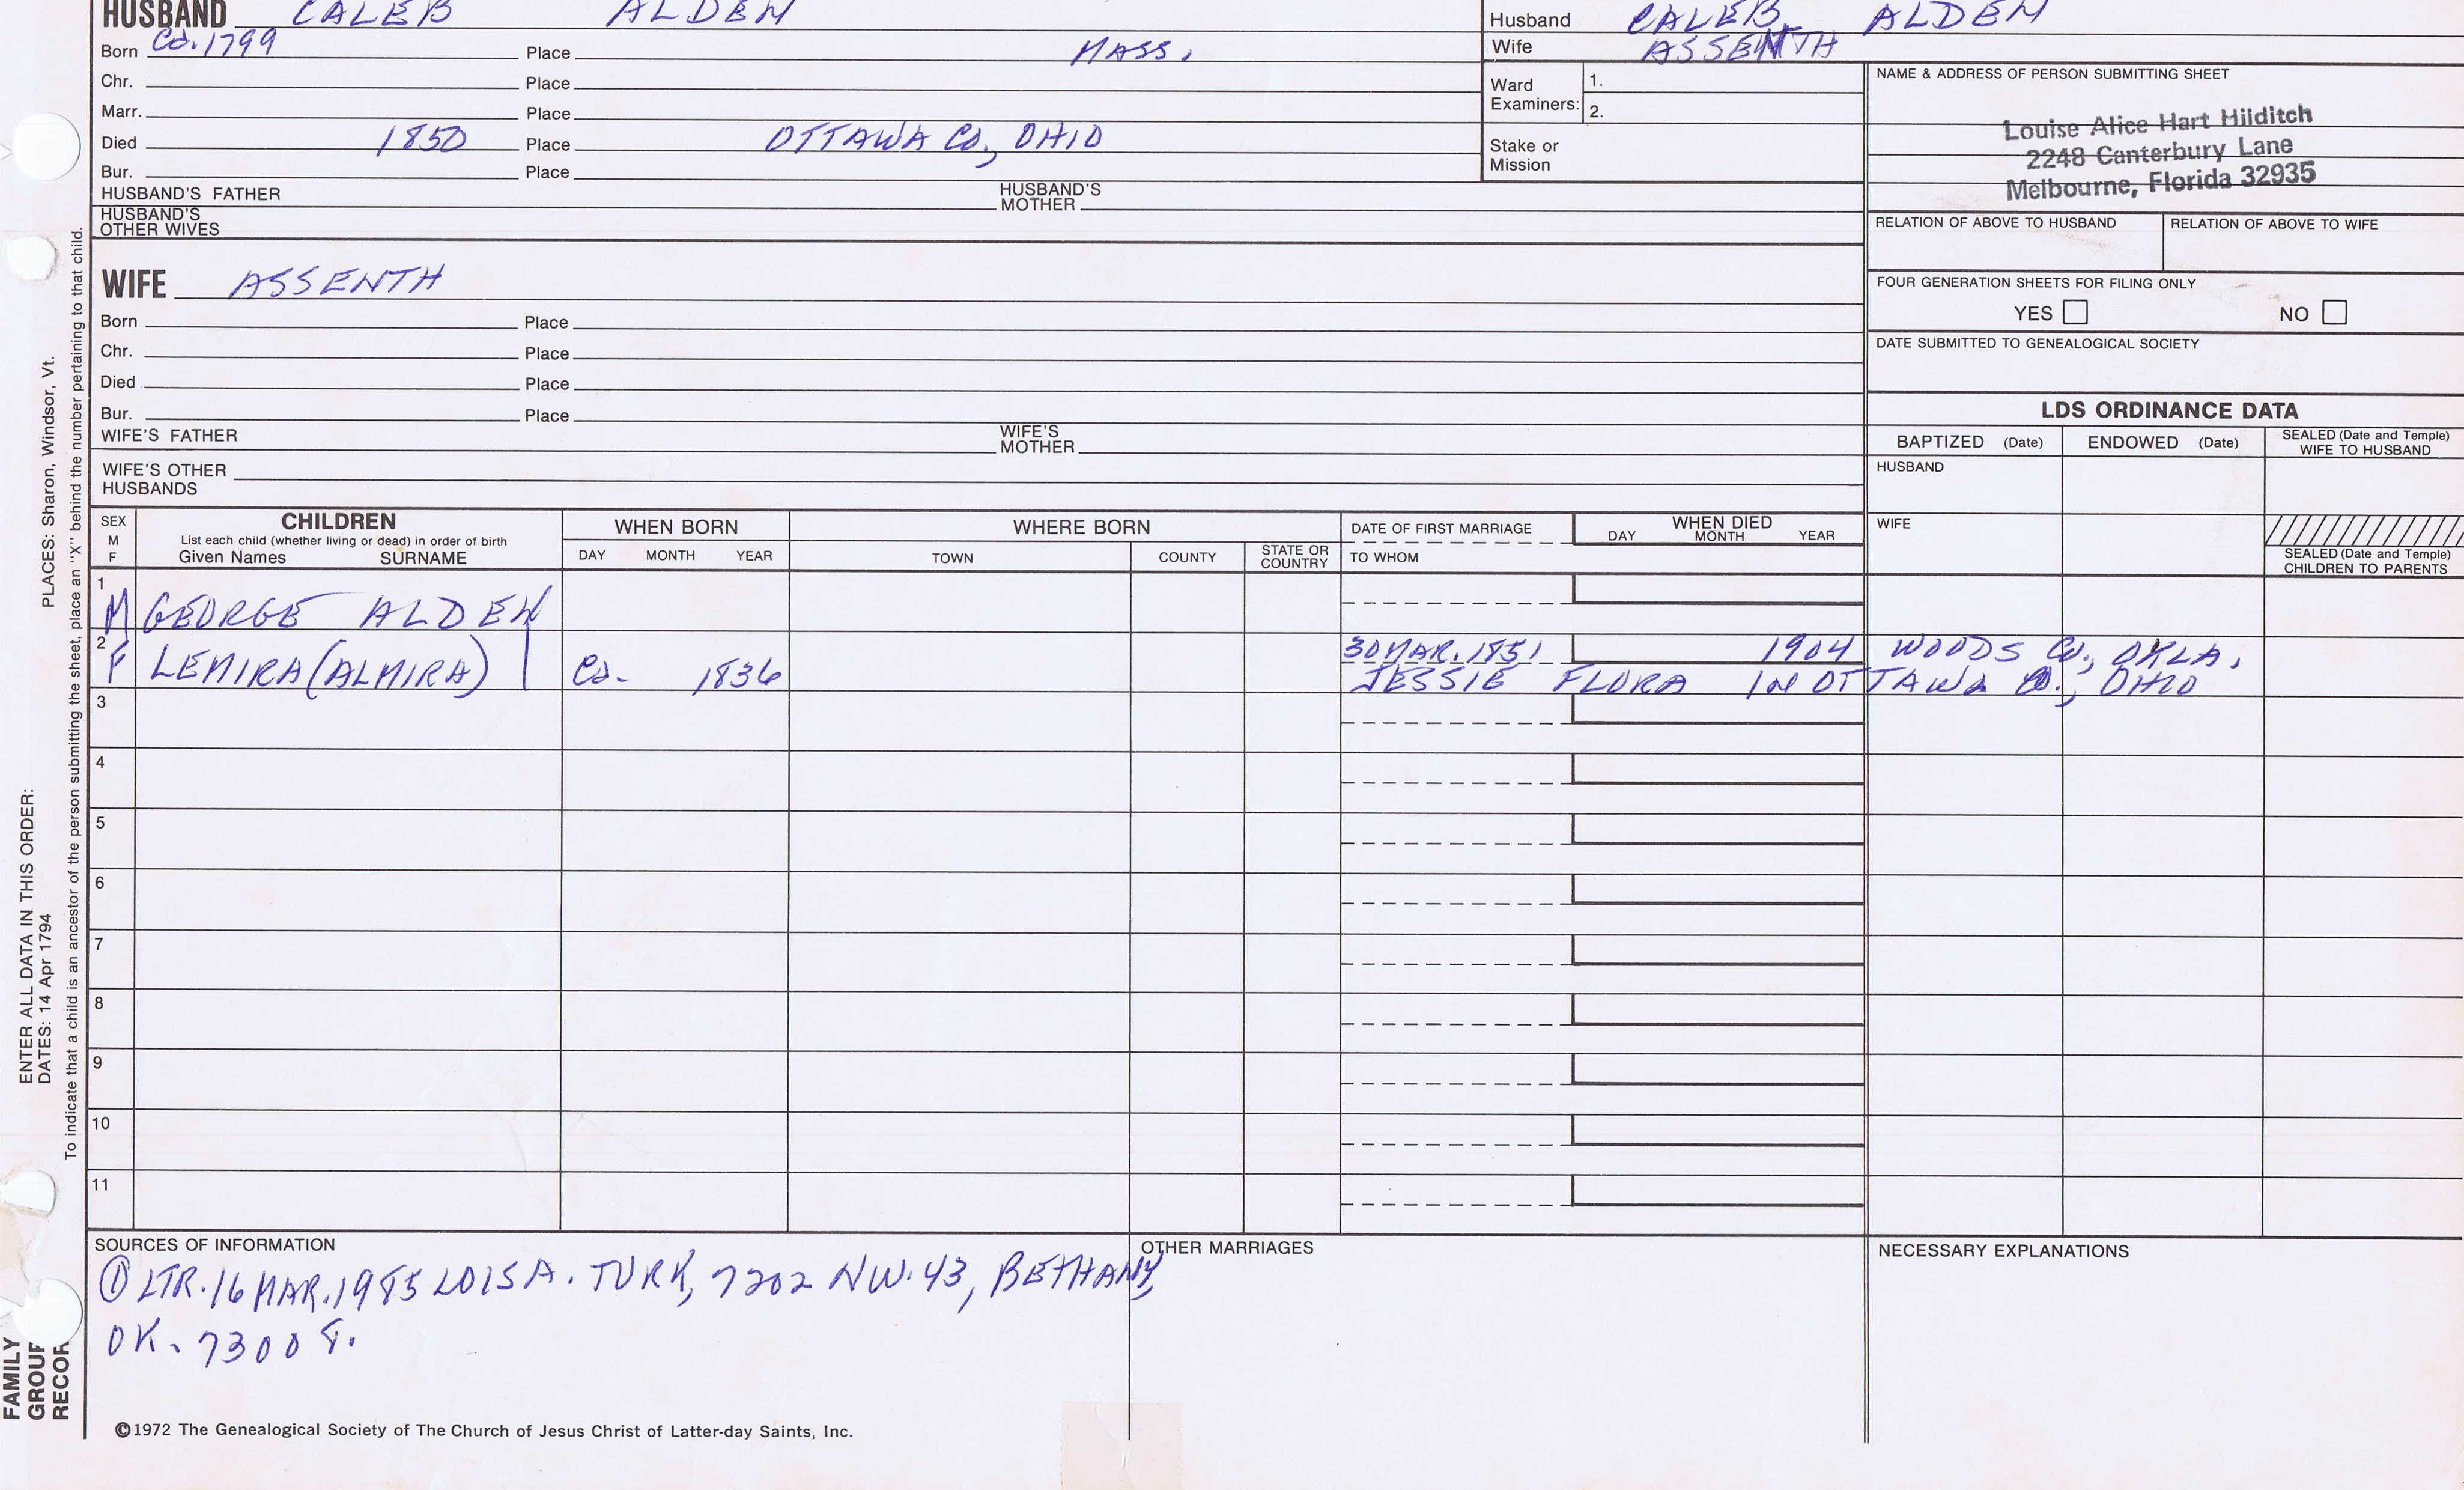 HUSBAND CALEB ALDEN
Born Ca. 1799 Place MASS.
Chr. Place
Marr. Place
Died 1850 Place OTTAWA Co., OHIO
Bur. Place
HUSBAND'S FATHER HUSBAND'S MOTHER
HUSBAND'S OTHER WIVES
Husband CALEB ALDEN
Wife ASSENTH
Ward Examiners: 1.
2.
Stake or Mission
NAME & ADDRESS OF PERSON SUBMITTING SHEET
Louise Alice Hart Hilditch
2248 Canterbury Lane
Melbourne, Florida 32935
RELATION OF ABOVE TO HUSBAND RELATION OF ABOVE TO WIFE
FOUR GENERATION SHEETS FOR FILING ONLY
YES NO
DATE SUBMITTED TO GENEALOGICAL SOCIETY
WIFE ASSENTH
Born Place
Chr. Place
Died Place
Bur. Place
WIFE'S FATHER WIFE'S MOTHER
WIFE'S OTHER HUSBANDS
LDS ORDINANCE DATA
BAPTIZED (Date) ENDOWED (Date) SEALED (Date and Temple) WIFE TO HUSBAND
HUSBAND
WIFE
SEALED (Date and Temple) CHILDREN TO PARENTS
SEX M F
CHILDREN
List each child (whether living or dead) in order of birth
Given Names SURNAME
WHEN BORN
DAY MONTH YEAR
WHERE BORN
TOWN COUNTY STATE OR COUNTRY
DATE OF FIRST MARRIAGE
TO WHOM
WHEN DIED
DAY MONTH YEAR
1 M GEORGE ALDEN
2 F LEMIRA (ALMIRA) Ca. 1836 30 MAR. 1851 1904 WOODS Co., OKLA.
JESSIE FLORA IN OTTAWA Co., OHIO
3
4
5
6
7
8
9
10
11
SOURCES OF INFORMATION
① LTR. 16 MAR. 1985 LOIS A. TURK, 7202 NW. 43, BETHANY,
OK. 73008.
OTHER MARRIAGES
NECESSARY EXPLANATIONS
©1972 The Genealogical Society of The Church of Jesus Christ of Latter-day Saints, Inc.
FAMILY
GROUP
RECOR
ENTER ALL DATA IN THIS ORDER:
DATES: 14 Apr 1794 PLACES: Sharon, Windsor, Vt.
To indicate that a child is an ancestor of the person submitting the sheet, place an "X" behind the number pertaining to that child.